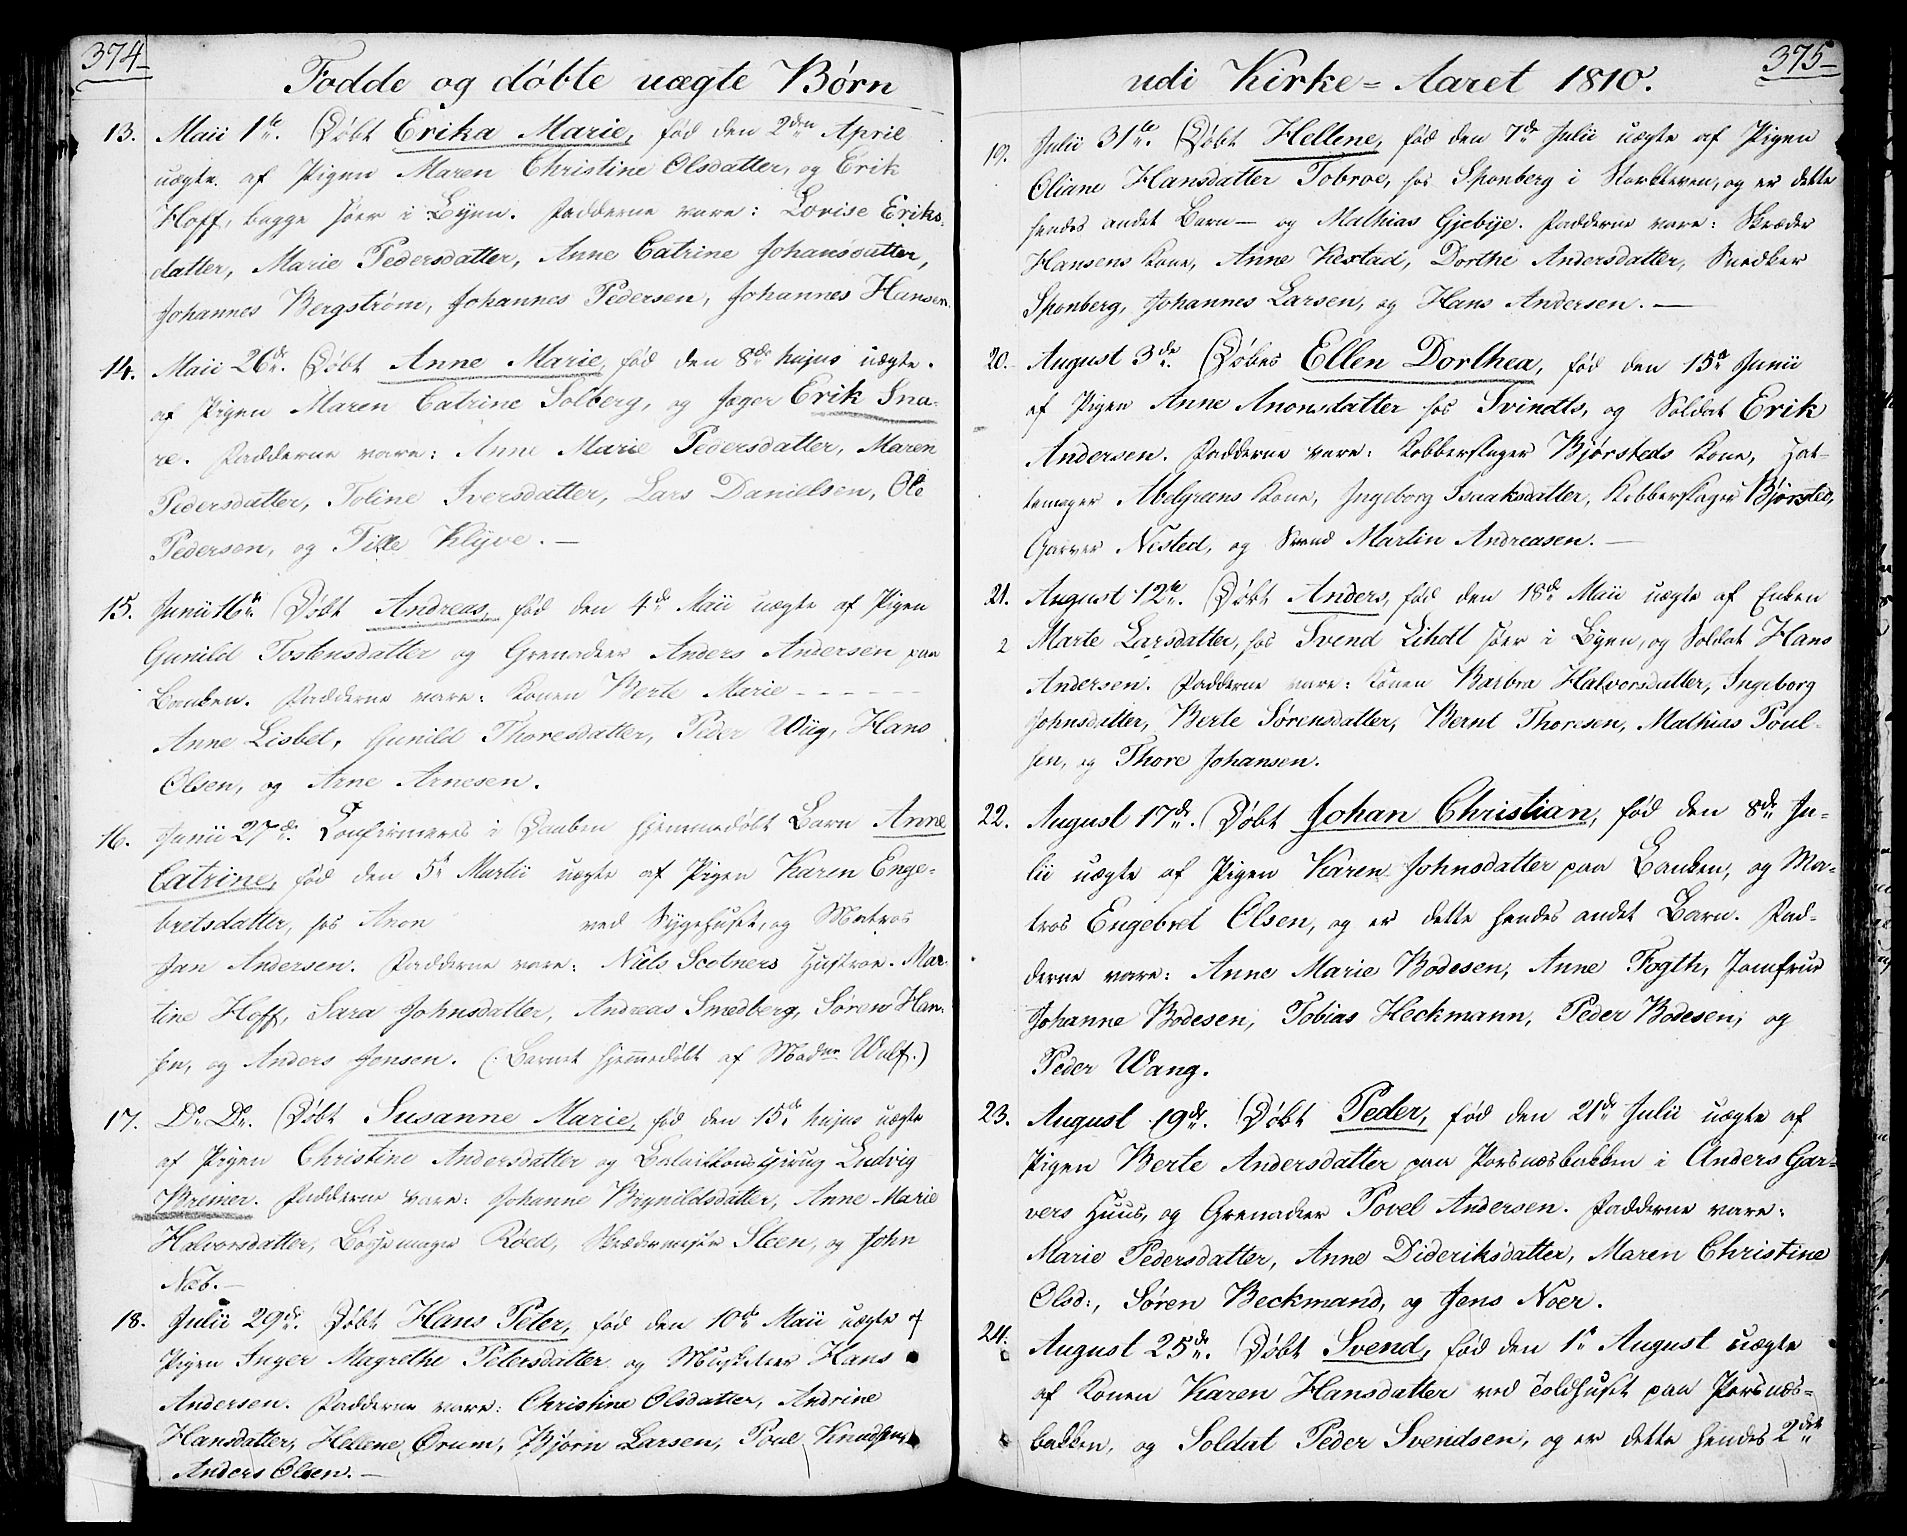 374
Fødde og døbte uægte Børn
13. Maii 1te. Døbt Erika Marie, fød den 2den April
uægte af Pigen Maren Christine Olsdatter, og Erik
Hoff, begge her i Byen. Fadderne vare: Lovise Eriks-
datter, Marie Pedersdatter, Anne Catrine Johansdatter,
Johannes Bergstrøm, Johannes Pedersen, Johannes Hansen.
14. Maii 26de. Døbt Anne Marie, fød den 8de hujus uægte
af Pigen Maren Catrine Solberg, og Jæger Erik Sna-
re. Fadderne vare: Anne Marie Pedersdatter, Maren
Pedersdatter, Toline Iversdatter, Lars Danielsen, Ole
Pedersen, og Tille Klyve. —
15. Junii 16de Døbt Andreas, fød den 4de Maii uægte af Pigen
Gunild Tostensdatter og Grenadeer Anders Andersen paa
Banken. Fadderne vare: Konen Berte Marie - - - - -
Anne Lisbet, Gunild Thoresdatter, Peder Wiig, Hans
Olsen, og Arne Arnesen.
16. Junii 27de. Confirmeres i Daaben hjemmedøbt Barn Anne
Catrine, fød den 5te Martii uægte af Pigen Karen Enge-
bretsdatter, hos Aron ved Sygehuset, og Matros
Jan Andersen. Fadderne vare: Niels Scotners Hustroe. Mar-
tine Hoff, Sara Johnsdatter, Andreas Smedberg, Søren Han-
sen, og Anders Jensen. (Barnet hjemmedøbt af Madme Wulf.)
17. Do Do. Døbt Susanne Marie, fød den 15de hujus uægte
af Pigen Christine Andersdatter og Batailions Chirug Ludvig
Breiner. Fadderne vare: Johanne Brynildsdatter, Anne Marie
Halvorsdatter, Bøssemager Røed, Skrædermester Steen, og John
Næb. —
18. Julii 29de. Døbt Hans Peter, fød den 10de Maii uægte af
Pigen Inger Magrethe Petersdatter og Musketeer Hans
Andersen. Fadderne vare: Christine Olsdatter, Andrine
Hansdatter, Hellene Ørum, Bjørn Larsen, Poul Knudsen,
Anders Olsen. —
375
udi Kirke-Aaret 1810.
19. Julii 31te. Døbt Hellene, fød den 7de Julii uægte af Pigen
Oliane Hansdatter Tobroe, hos Sponberg i Storkleven, og er dette
hendes andet Barn — og Mathias Gjebye. Fadderne vare: Skræder
Hansens Kone, Anne Kestad, Dorthe Andersdatter, Snedker
Sponberg, Johannes Larsen, og Hans Andersen. —
20. August 3de. Døbes Ellen Dorthea, fød den 15de Junii
af Pigen Anne Anonsdatter hos Svindts, og Soldat Erik
Andersen. Fadderne vare: Kobberslager Bjørsteds Kone, Hat-
temager Abelgreens Kone, Ingeborg Isaaksdatter, Kobberslager Bjørsted,
Garver Nisted, og Svend Martin Andreasen. —
21. August 12te. Døbt Anders, fød den 18de Maii uægte af Enken
2 Marte Larsdatter, hos Svend Liholt her i Byen, og Soldat Hans
Andersen. Fadderne vare: Konen Barbra Halvorsdatter, Ingeborg
Johnsdatter, Berte Sørensdatter, Bernt Thoresen, Mathias Poul-
sen, og Thore Johansen.
22. August 17de. Døbt Johan Christian, fød den 8de Ju-
lii uægte af Pigen Karen Johnsdatter paa Banken, og Ma-
tros Engebret Olsen, og er dette hendes andet Barn. Fad-
derne vare: Anne Marie Bodesen, Anne Fogth, Jomfrue
Johanne Bodesen, Tobias Heckmann, Peder Bodesen, og
Peder Wang.
23. August 19de. Døbt Peder, fød den 21de Julii uægte af
Pigen Berte Andersdatter paa Porsnæsbakken i Anders Gar-
vers Huus, og Grenadeer Povel Andersen. Fadderne vare:
Marie Pedersdatter, Anne Dideriksdatter, Maren Christine
Olsd:, Søren Beckmand, og Jens Noer.
24. August 25de. Døbt Svend, fød den 1te August uægte
af Konen Karen Hansdatter ved Toldhuset paa Porsnæs-
bakken, og Soldat Peder Svendsen, og er dette hendes 2det